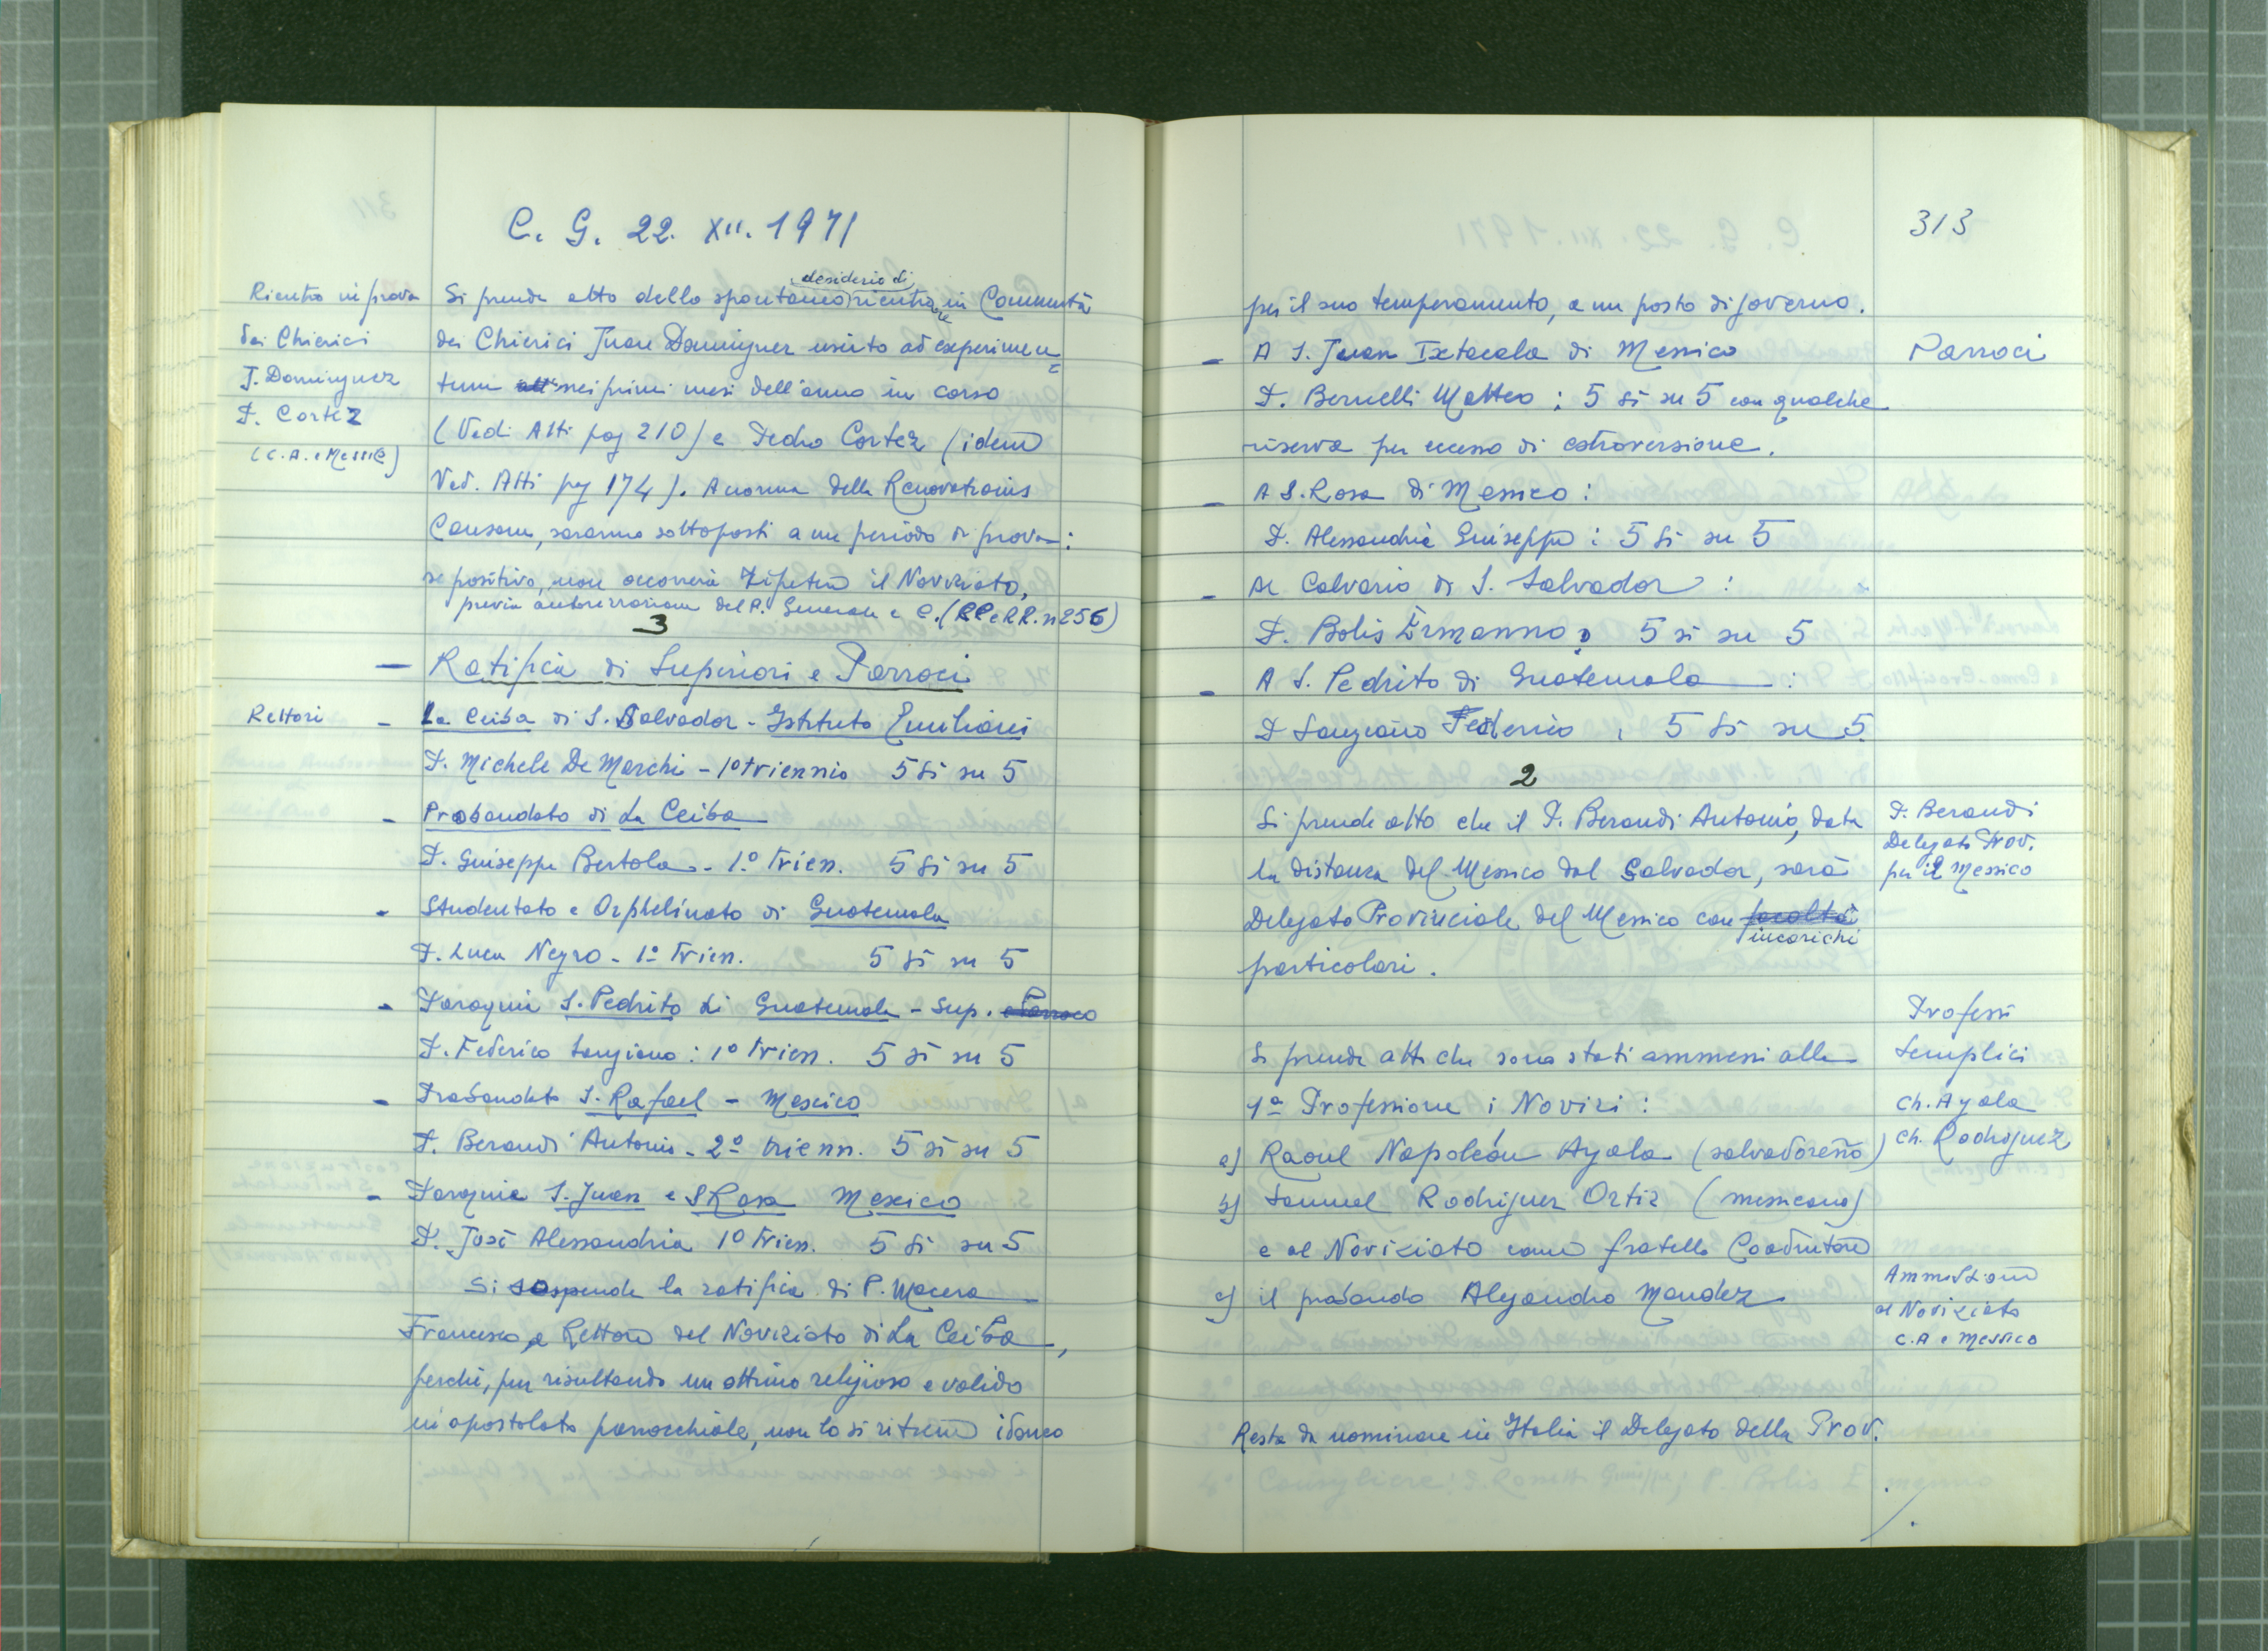 C. G. 22. XII. 1971
Rientro in prova
dei Chierici
J. Dominguez
P. Cortez
(C.A. e Messico)
desiderio di
Si prende atto dello spontaneo rientrare in Comunità
dei Chierici Juan Dominguez uscito ad experimen=
tum nei primi mesi dell'anno in corso
(Vedi Atti pag 210) e Pedro Cortez (idem
Ved. Atti pag 174). A norma della Renovationis
Causam, saranno sottoposti a un periodo di prova:
se positivo, non occorrerà ripetere il Noviziato,
previa autorizzazione del P. Generale e C. (CC e RR. n 256)
3
— Ratifica di Superiori e Parroci
Rettori
- La Ceiba di S. Salvador - Istituto Emiliani
P. Michele De Marchi - 1º triennio 5 si su 5
- Probandato di La Ceiba
P. Giuseppe Bertola - 1º Trien. 5 si su 5
- Studentato e Orphelinato di Guatemala
P. Luca Negro - 1º Trien. 5 si su 5
- Paroquia S. Pedrito di Guatemala - Sup. e Parroco
P. Federico Sangiano: 1º Trien. 5 si su 5
- Probandato S. Rafael - Mexico
P. Berandi Antonio - 2º trienn. 5 si su 5
- Paroquia S. Juan e S Rosa Mexico
P. José Alessandria 1º Trien. 5 si su 5
Si sospende la ratifica di P. Macera
Francesco, a Rettore del Noviziato di La Ceiba,
perché, pur risultando un ottimo religioso e valido
in apostolato parrocchiale, non lo si ritiene idoneo
313
per il suo temperamento, a un posto di governo.
Parroci
- A S. Juan Ixtacala di Messico
P. Bernelli Matteo: 5 si su 5 con qualche
riserva per eccesso di estroversione.
- A S. Rosa di Messico:
P. Alessandria Giuseppe: 5 si su 5
- Al Calvario di S. Salvador:
P. Bolis Ermanno: 5 si su 5
- A S. Pedrito di Guatemala:
P Sangiano Federico, 5 si su 5
2
P. Berandi
Delegato Prov.
per il Messico
Si prende atto che il P. Berandi Antonio, data
la distanza del Messico dal Salvador, sarà
Delegato Provinciale del Messico con facoltà
incarichi
particolari.
Professi
semplici
Ch. Ayala
Ch. Rodriguez
Si prende atto che sono stati ammessi alla
1ª Professione i Novizi:
a) Raoul Napoleón Ayala (salvadoreño)
b) Samuel Rodriguez Ortiz (messicano)
e al Noviziato come fratello Coadiutore
c) il probando Alejandro Mendez
Ammissione
al Noviziato
C.A e Messico
Resta da nominare in Italia il Delegato della Prov.